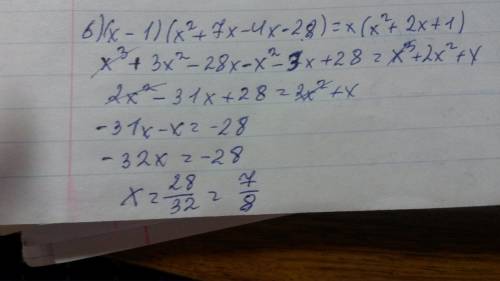 в)(x-1)(x²+7x-4x-28)=x(x²+2x+1)
x³+3x²-28x-x²-3x+28=x³+2x²+x
2x²-31x+28=2x²+x
-31x-x=-28
-32x=-28
x=28/32=7/8